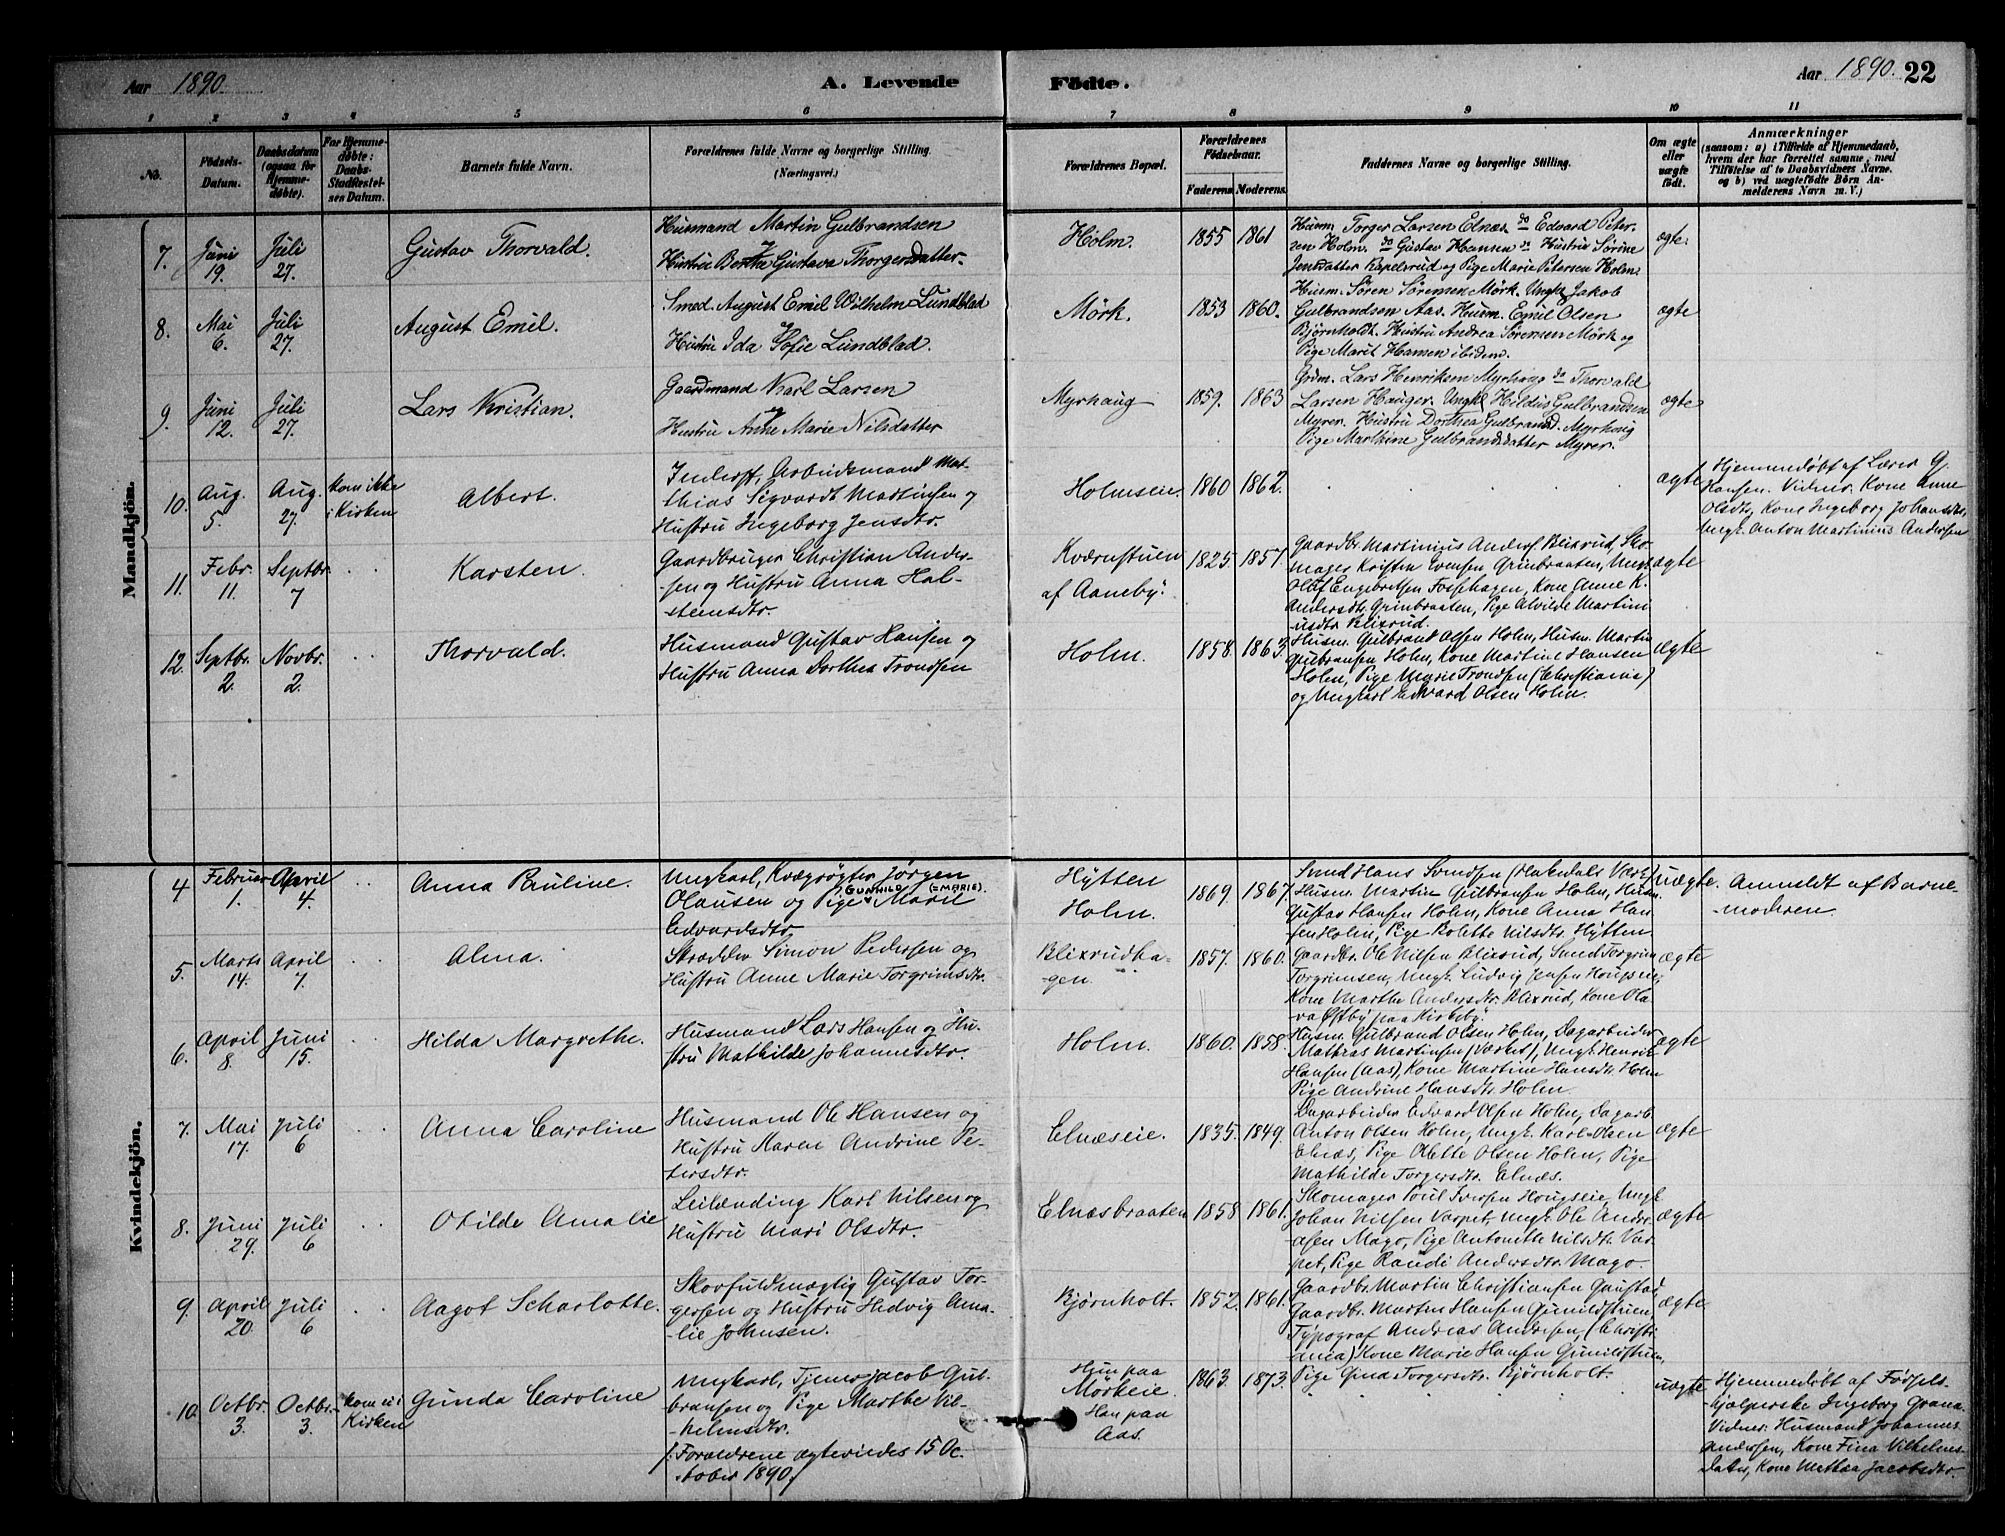 Aar 1890.
A. Levende Födte.
Aar 1890. 22
1 2 3 4 5 6 7 8 9 10 11
No.
Födsels-
Datum.
Daabsdatum
(ogsaa for
Hjemme-
døbte).
For Hjemme-
døbte:
Daabs-
Stadfæstel-
ses Datum.
Barnets fulde Navn.
Forældrenes fulde Navne og borgerlige Stilling
(Næringsvei.)
Forældrenes Bopæl.
Forældrenes
Födselsaar.
Faderens. Moderens.
Faddernes Navne og borgerlige Stilling.
Om ægte
eller
uægte
født.
Anmærkninger
(saasom: a) i Tilfælde af Hjemmedaab,
hvem der har forrettet samme, med
Tilföielse af to Daabsvidners Navne,
og b) ved uægtefödte Börn An-
melderens Navn m. V.)
Mandkjön.
7. Juni 19. Juli 27. Gustav Thorvald.
Husmand Martin Gulbrandsen
Hustru Berthe Gustava Thorgersdatter.
Holm. 1855 1861
Husm. Torger Larsen Elnæs do Edvard Peter-
sen Holm. do Gustav Hansen do Hustru Sørine
Jensdatter Kapelsrud og Pige Marie Petersen Holm.
ægte.
8. Mai 6. Juli 27. August Emil.
Smed August Emil Wilhelm Lundblad
Hustru Ida Sofie Lundblad.
Mörk. 1853 1860.
Husm. Sören Sörensen Mörk. Ungk. Jakob
Gulbrandsen Aas. Husm. Emil Olsen
Bjørnholdt. Hustru Andrea Sørensen Mørk og
Pige Marit Hansen ibidem.
ægte
9. Juni 12. Juli 27. Lars Kristian.
Gaardmand Karl Larsen
Hustru Anne Marie Nilsdatter
Myrhaug 1859. 1863
Grdm. Lars Henriksen Myrhaug do Thorvald
Larsen Hauger. Ungk. Hildus Gulbrandsen
Myrer. Hustru Dorthea Gulbrand. Myrhaug
Pige Marthine Gulbrandsdatter Myrer.
ægte
10. Aug. 5. Aug. 27. kom ikke
i Kirken Albert.
Inderst, Arbeidsmand Mat-
thias Sigvardt Martinsen og
Hustru Ingeborg Jensdtr.
Holmseie. 1860 1862.
ægte
Hjemmedøbt af Lærer G.
Hansen. Vidner. Kone Anne
Olsdtr, Kone Ingeborg Johansdtr,
Ungk. Anton Martinius Andersen
11. Febr. 11. Septbr. 7 Karsten.
Gaardbruger Christian Ander-
sen og Hustru Anna Hal-
steensdtr.
Kværnstuen
af Aaneby. 1825. 1857.
Gaardbr. Martinius Anders. Blixrud, Sko-
mager Kristen Evensen Grinbraaten, Ungk.
Olaf Engebretsen Fossehagen, Kone Anne K.
Andersdtr. Grinbraaten, Pige Alvilde Martini
usdtr Blixrud.
ægte
12. Septbr. 2. Novbr. 2. Thorvald.
Husmand Gustav Hansen og
Hustru Anna Dorthea Trondsen
Holm. 1858. 1863.
Husm. Gulbrand Olsen Holm, Husm. Martin
Gulbransen Holm, Kone Martine Hansen
Holm, Pige Marie Trondsen (Christiania)
og Ungkarl Edvard Olsen Holm.
ægte
Kvindekjön.
4 Februar 1. April 4. Anna Pauline.
Ungkarl, Kvægrøgter Jørgen
GUNHILD (=MARIE).
Olausen og Pige Maril
Edvardsdtr
Hytten
Holm. 1869. 1867.
Smed Hans Svendsen (Hakedals Værk)
Husm. Martin Gulbransen Holm, Husm.
Gustav Hansen Holm, Kone Anna Han
sen Holm, Pige Bolette Nilsdtr. Hytten
uægte.
Anmeldt af Barne-
moderen.
5. Marts 14. April 7. Alma.
Skrædder Simon Pedersen og
Hustru Anne Marie Torgrimsdtr.
Blixrudha-
gen. 1857. 1860.
Gaardbr. Ole Nilsen Blixrud, Smed Torgrim
Torgrimsen, Ungk. Ludvig Jensen Hougseie,
Kone Marthe Andersdtr. Blixrud, Kone Ola-
va Østby paa Kirkeby.
ægte
6. April 8. Juni 15. Hilda Margrethe.
Husmand Lars Hansen og Hu-
stru Mathilde Johannesdtr.
Holm. 1860. 1858.
Husm. Gulbrand Olsen Holm, Dagarbeider
Mathias Martinsen (Værket), Ungk. Henrik
Hansen (Aas), Kone Martine Hansdtr. Holm
Pige Andrine Hansdtr. Holm.
ægte
7. Mai 17. Juli 6 Anna Caroline
Husmand Ole Hansen og
Hustru Karen Andrine Pe-
tersdtr.
Elnæseie. 1835. 1849.
Dagarbeider Edvard Olsen Holm, Dagarb.
Anton Olsen Holm, Ungk. Karl Olsen
Elnæs, Pige Olette Olsen Holm, Pige
Mathilde Torgersdtr. Elnæs.
ægte
8. Juni 29. Juli 6 Otilde Amalie
Leilænding Karl Nilsen og
Hustru Mari Olsdtr.
Elnæsbraaten 1858 1861.
Skomager Poul Iversen Hougseie, Ungk.
Johan Nilsen Varpet, Ungk. Ole Andre-
asen Mago, Pige Antonette Nilsdtr. Var-
pet, Pige Randi Andersdtr. Mago.
ægte
9. April 20. Juli 6 Aagot Scharlotte.
Skovfuldmægtig Gustav Tor-
gersen og Hustru Hedvig Ama-
lie Johnsen.
Bjørnholt. 1852. 1861.
Gaardbr. Martin Christiansen Gaustad,
Gaardbr. Morten Hansen Gunildstuen,
Typograf Andreas Andresen, (Christi-
ania) Kone Marie Hansen Gunildstuen,
Pige Gina Torgersdtr. Bjørnholt.
ægte
10. Octbr. 3. Octbr. 3. kom ei i
Kirken Gunda Caroline
Ungkarl, Tjener Jacob Gul-
bransen og Pige Marthe Vil-
helmsdtr.
/: Forældrene ægteviedes 15 Oc-
tober 1890/
Hun paa
Mørkeie.
Han paa
Aas.
1863. 1873.
uægte
Hjemmedøbt af Fødsels-
hjælperske Ingeborg Grana.
Vidner: Husmand Johannes
Andersen, Kone Fina Vilhelmes-
datter, Kone Mathea Jacobsdtr.